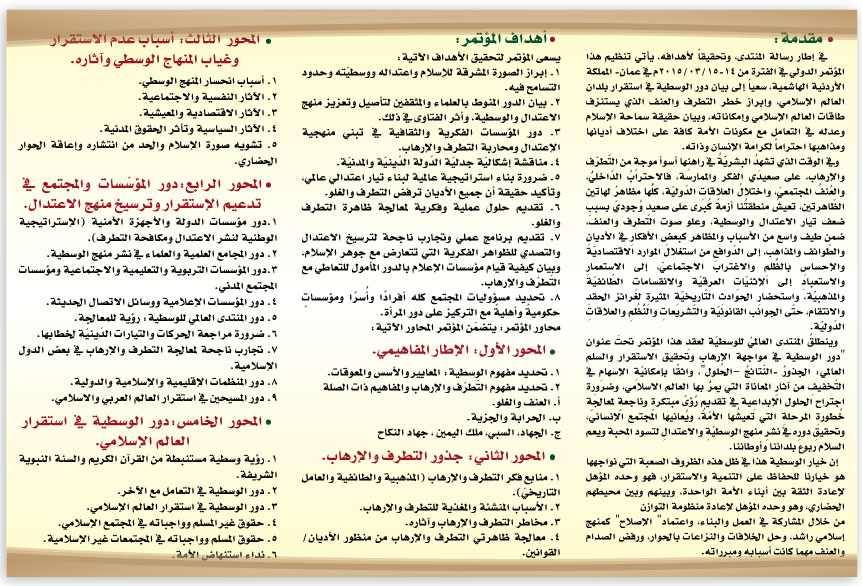 • مقدمة :
في إطار رسالة المنتدى، وتحقيقاً لأهدافه، يأتي تنظيم هذا
المؤتمر الدولي في الفترة من ١٤-٢٠١٥/٠٣/١٥م في عمان- المملكة
الأردنية الهاشمية، سعياً إلى بيان دور الوسطية في استقرار بلدان
العالم الإسلامي، وإبراز خطر التطرف والعنف الذي يستنزف
طاقات العالم الإسلامي وإمكاناته، وبيان حقيقة سماحة الإسلام
وعدله في التعامل مع مكونات الأمة كافة على اختلاف أديانها
ومذاهبها احتراماً لكرامة الإنسان وذاته.
وفي الوقت الذي تشهدُ البشريّةُ في راهنها أسوأ موجة من التّطرّف
والإرهاب، على صعيدَي الفكر والممارسة، فالاحترابُ الدّاخليُّ،
والعُنفُ المجتمعيّ، واختلالُ العلاقات الدّوليّة، كلُّها مظاهرُ لهاتين
الظّاهرتين، تعيش منطقتُنا أزمةً كُبرى على صعيد وُجودي بسبب
ضعف تيار الاعتدال والوسطية، وعلو صوت التطرف والعنف،
ضمن طيف واسع من الأسباب والمظاهر كبعض الأفكار في الأديان
والطوائف والمذاهب، إلى الدّوافع من استغلال الموارد الاقتصاديّة
والإحساس بالظُّلم والاغتراب الاجتماعيّ، إلى الاستعمار
والاستعباد إلى الإثنيّات العرقيّة والانقسامات الطّائفيّة
والمذهبيّة، واستحضار الحوادث التاريخيّة المثيرة لغرائز الحقد
والانتقام، حتّى الجوانب القانونيّة والتشريعات والنُّظُم والعلاقات
الدّوليّة.
وينطلقُ المنتدى العالميُّ للوسطيّة لعقد هذا المؤتمر تحتَ عنوان
"دور الوسطية في مواجهة الإرهاب وتحقيق الاستقرار والسلم
العالمي: الجذورُ -النّتائجُ -الحُلول"، واثقًا بإمكانيّة الإسهام في
التّخفيف من آثار المعاناة التي يمرُّ بها العالم الاسلامي، وضرورة
اجتراح الحلول الإبداعية في تقديم رُؤىً مبتكرة وناجعة لمعالجة
خُطورة المرحلة التي تعيشُها الأمّة، ويُعانيها المجتمع الإنسانيّ،
وتحقيق دوره في نشر منهج الوسطيّة والاعتدال لتسود المحبة ويعم
السلام ربوعَ بلداننا وأوطاننا.
إن خيار الوسطية هذا في ظل هذه الظروف الصعبة التي نواجهها
هو خيارنا للحفاظ على التنمية والاستقرار، فهو وحده المؤهل
لإعادة الثقة بين أبناء الأمة الواحدة، وبينهم وبين محيطهم
الحضاري، وهو وحده المؤهل لإعادة منظومة التوازن
من خلال المشاركة في العمل والبناء، واعتماد" الإصلاح" كمنهج
إسلامي راشد، وحل الخلافات والنزاعات بالحوار، ورفض الصدام
والعنف مهما كانت أسبابه ومبرراته.
•أهداف المؤتمر:
يسعى المؤتمر لتحقيق الأهداف الآتية:
١. إبراز الصورة المشرقة للإسلام واعتداله ووسطيّته وحدود
التسامح فيه.
٢. بيان الدور المنوط بالعلماء والمثقفين لتأصيل وتعزيز منهج
الاعتدال والوسطية، وأثر الفتاوى في ذلك.
٣. دور المؤسسات الفكرية والثقافية في تبني منهجية
الإعتدال ومحاربة التطرف والإرهاب.
٤. مناقشة إشكاليّة جدليّة الدّولة الدّينيّة والمدنيّة.
٥. ضرورة بناء استراتيجية عالمية لبناء تيار اعتدالي عالمي،
وتأكيد حقيقة أن جميع الأديان ترفض التطرف والغلو.
٦. تقديم حلول عملية وفكرية لمعالجة ظاهرة التطرف
والغلو.
٧. تقديم برنامج عملي وتجارب ناجحة لترسيخ الاعتدال
والتصدي للظواهر الفكرية التي تتعارض مع جوهر الإسلام،
وبيان كيفية قيام مؤسسات الإعلام بالدور المأمول للتعاطي مع
التطرّف والإرهاب.
٨. تحديد مسؤوليات المجتمع كله أفرادًا وأُسرًا ومؤسساتٍ
حكومية وأهلية مع التركيز على دور المرأة.
محاور المؤتمر: يتضمّن المؤتمر المحاور الآتية:
• المحور الأول: الإطار المفاهيمي.
١. تحديد مفهوم الوسطية: المعايير والأسس والمعوقات.
٢. تحديد مفهوم التّطرّف والإرهاب والمفاهيم ذات الصلة
أ. العنف والغلو.
ب. الحرابة والجزية.
ج. الجهاد، السبي، ملك اليمين، جهاد النكاح
• المحور الثاني: جذور التطرف والإرهاب.
١. منابع فكر التطرف والإرهاب (المذهبية والطائفية والعامل
التاريخيّ).
٢. الأسباب المنشئة والمغذية للتطرف والإرهاب.
٣. مخاطر التطرف والإرهاب وآثاره.
٤. معالجة ظاهرتي التطرف والإرهاب من منظور الأديان/
القوانين.
• المحور الثالث: أسباب عدم الاستقرار
وغياب المنهاج الوسطي وآثاره.
١. أسباب انحسار المنهج الوسطي.
٢. الآثار النفسية والاجتماعية.
٣. الآثار الاقتصادية والمعيشية.
٤. الآثار السياسية وتأثر الحقوق المدنية.
٥. تشويه صورة الإسلام والحد من انتشاره وإعاقة الحوار
الحضاري.
• المحور الرابع: دور المؤسّسات والمجتمع في
تدعيم الإستقرار وترسيخ منهج الاعتدال.
١.دور مؤسسات الدولة والأجهزة الأمنية (الإستراتيجية
الوطنية لنشر الاعتدال ومكافحة التطرف).
٢.دور المجامع العلمية والعلماء في نشر منهج الوسطية.
٣.دور المؤسسات التربوية والتعليمية والاجتماعية ومؤسسات
المجتمع المدني.
٤. دور المؤسسات الإعلامية ووسائل الاتصال الحديثة.
٥. دور المنتدى العالمي للوسطية: رؤية للمعالجة.
٦. ضرورة مراجعة الحركات والتيارات الدّينيّة لخطابها.
٧. تجارب ناجحة لمعالجة التطرف والإرهاب في بعض الدول
الإسلامية.
٨. دور المنظمات الإقليمية والإسلامية والدولية.
٩. دور المسيحيين في استقرار العالم العربي والاسلامي.
• المحور الخامس: دور الوسطية في استقرار
العالم الإسلامي.
١. رؤية وسطية مستنبطة من القرآن الكريم والسنة النبوية
الشريفة.
٢. دور الوسطية في التعامل مع الآخر.
٣. دور الوسطية في استقرار العالم الإسلامي.
٤. حقوق غير المسلم وواجباته في المجتمع الإسلامي.
٥. حقوق المسلم وواجباته في المجتمعات غير الإسلامية.
٦. نداء استنهاض الأمة.